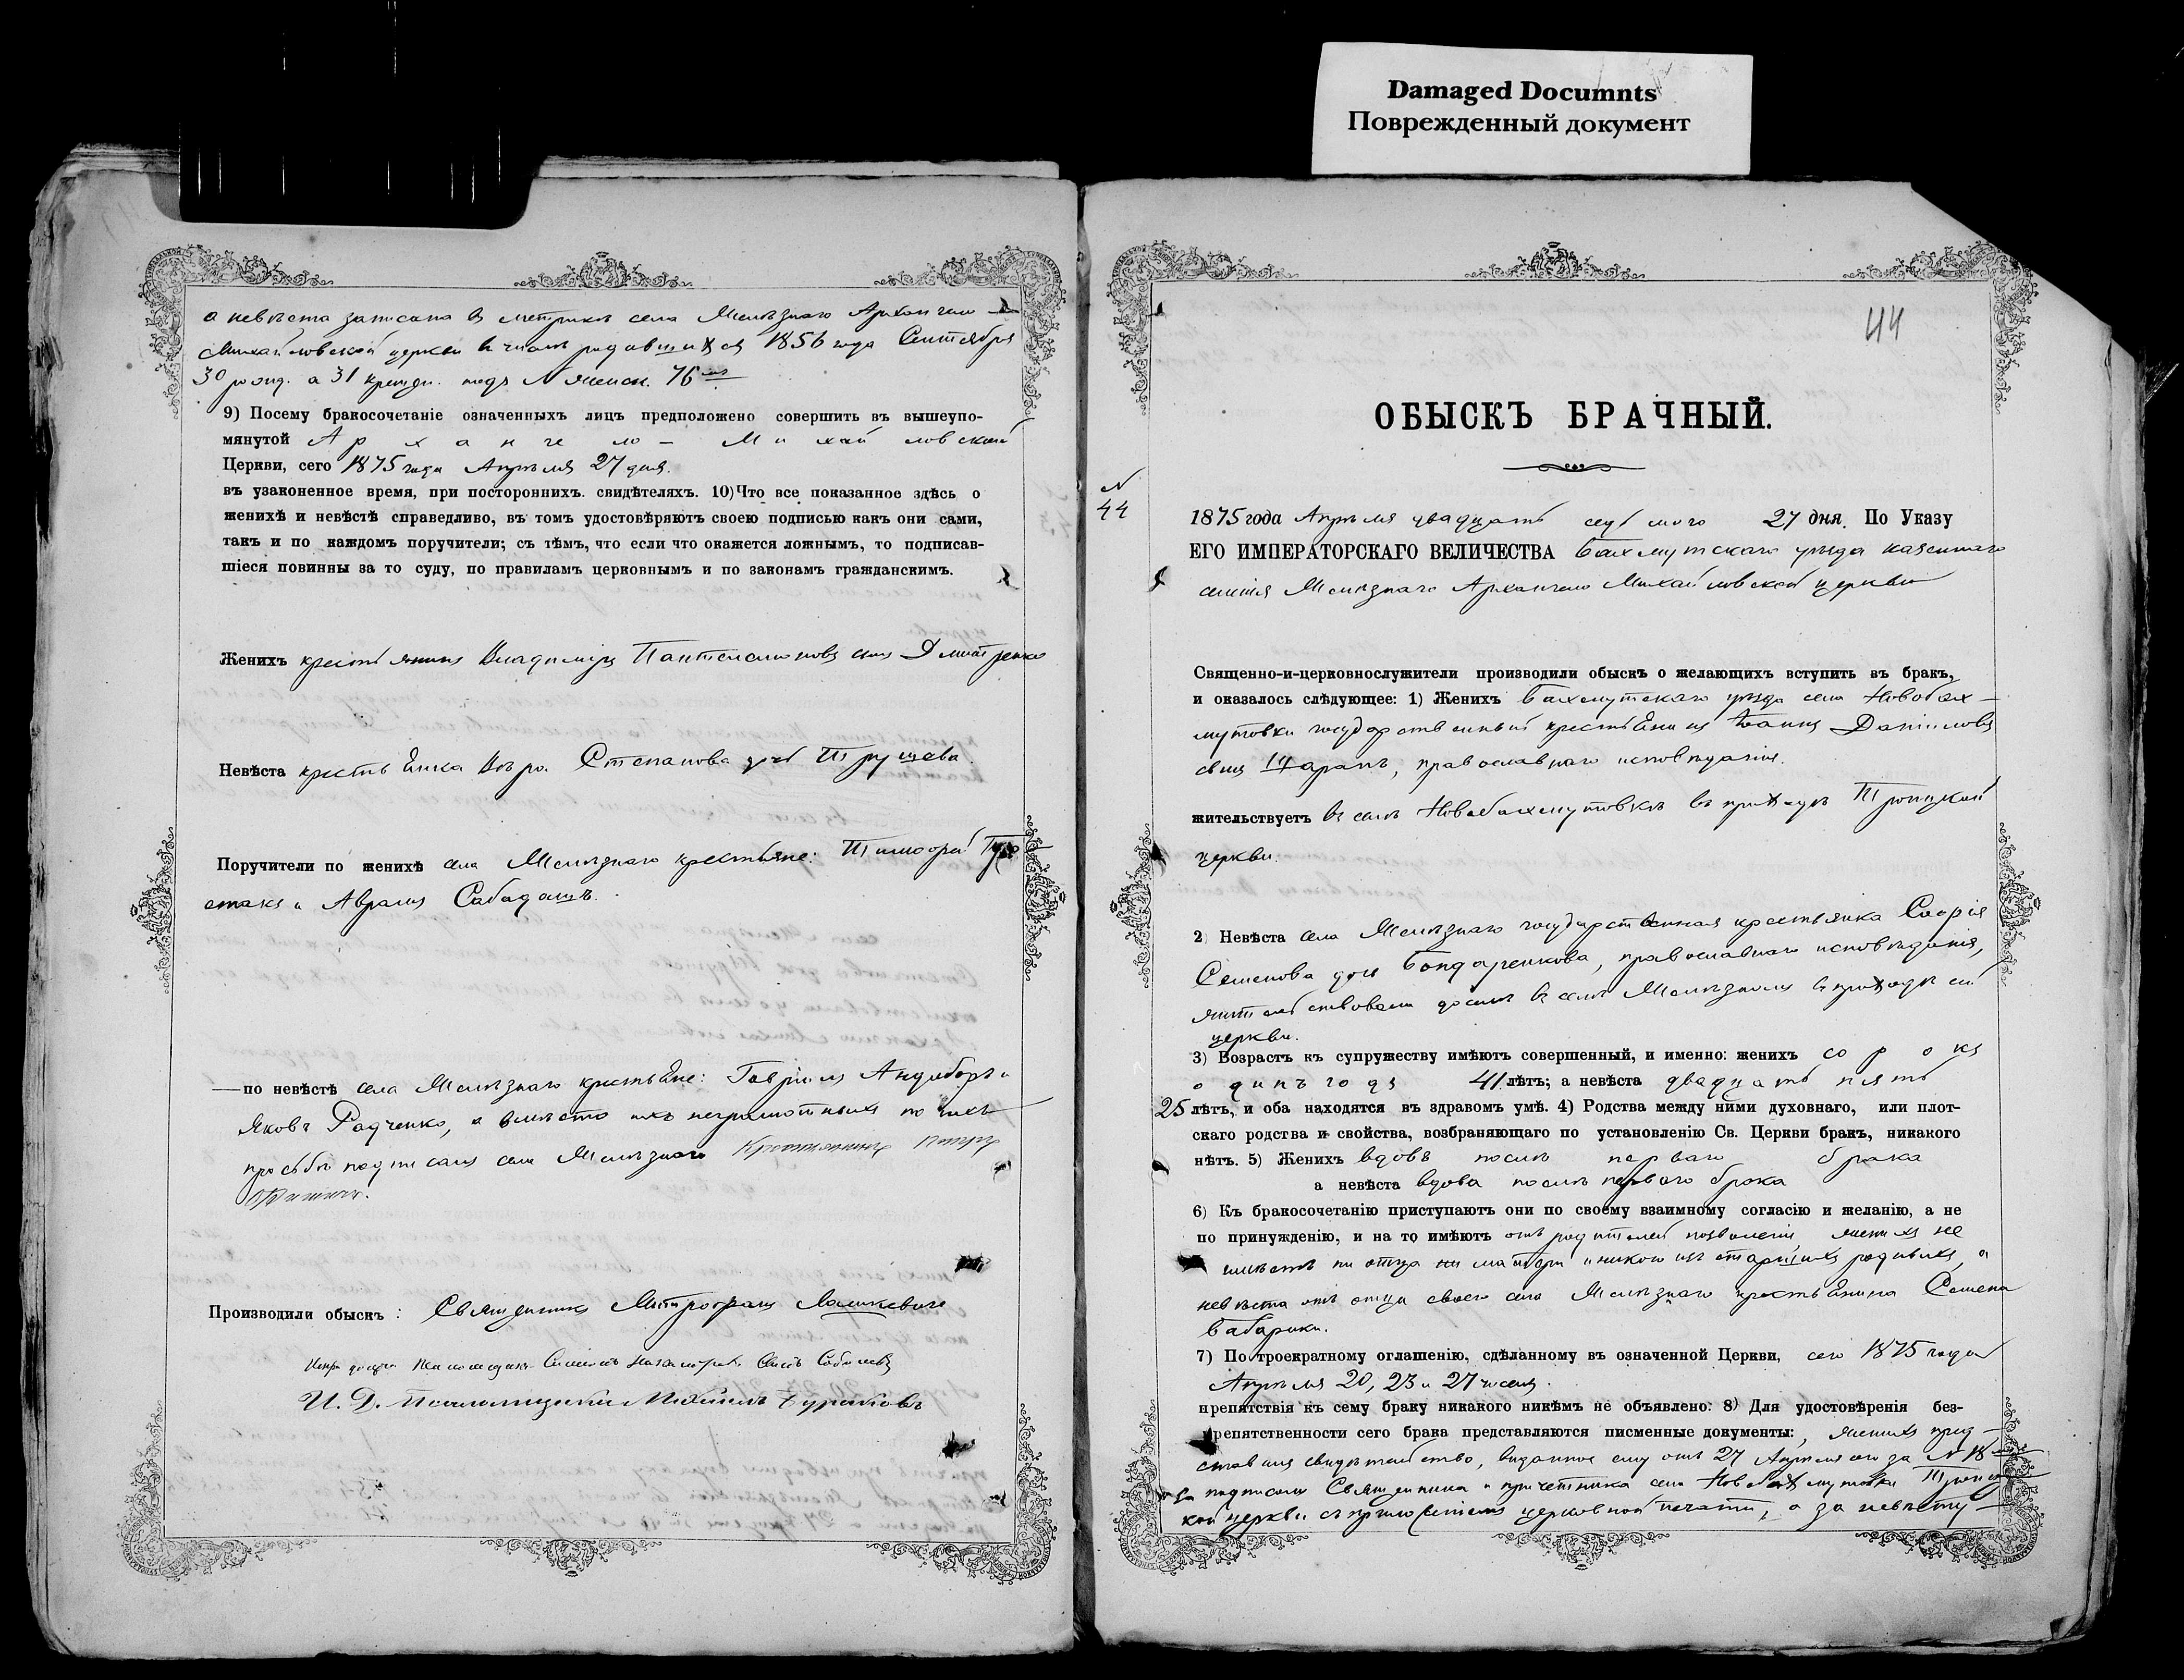 Damaged Documnts
Поврежденный документ
а невѣста записана въ метрикѣ села Желѣзнаго Архангело-
Михайловской церкви въ числѣ родившихся 1856 года Сентября
30 рожд. а 31 крещен. подъ № женск. 76
9) Посему бракосочетаніе означенныхъ лицъ предположено совершить въ вышеупо-
мянутой Архангело-Михайловской
Церкви, сего 1875 года Апрѣля 27 дня.
въ узаконенное время, при постороннихъ. свидѣтеляхъ. 10) Что все показанное здѣсь о
женихѣ и невѣстѣ справедливо, въ томъ удостовѣряютъ своею подписью какъ они сами,
такъ и по каждомъ поручители; съ тѣмъ, что если что окажется ложнымъ, то подписав-
шіеся повинны за то суду, по правиламъ церковнымъ и по законамъ гражданскимъ.
Женихъ крестьянинъ Владиміръ Пантелеимоновъ сынъ Дмитренко
Невѣста крестьянка Вѣра Степанова дочь Трущева.
Поручители по женихѣ села Желѣзнаго крестьяне: Тимофей
и Аврамъ Сабадашъ.
—по невѣстѣ села Желѣзнаго крестьяне: Гавріилъ и
Яковъ Радченко, а вмѣсто ихъ неграмотныхъ по ихъ
просьбѣ подписалъ села Желѣзнаго Крестьянинъ
Производили обыскъ: Священникъ Митрофанъ
И. Д. Псаломщика Михаилъ Бураковъ
44
ОБЫСКЪ БРАЧНЫЙ.
№
44
1875 года Апрѣля двадцать седьмого 27 дня. По Указу
ЕГО ИМПЕРАТОРСКАГО ВЕЛИЧЕСТВА Бахмутскаго уѣзда казеннаго
селенія Желѣзнаго Архангело Михайловской церкви
Священно-и-церковнослужители производили обыскъ о желающихъ вступить въ бракъ,
и оказалось слѣдующее: 1) Женихъ Бахмутскаго уѣзда села Новобах-
мутовки государственный крестьянинъ Іоаннъ Даніиловъ
сынъ Шарапъ, православнаго исповѣданія.
жительствуетъ въ селѣ Новобахмутовкѣ въ приходѣ Троицкой
церкви.
2) Невѣста села Желѣзнаго государственная крестьянка Софія
Семенова дочь Бондаренкова, православнаго исповѣданія,
жительствовала доселѣ въ селѣ Желѣзномъ въ приходѣ сей
церкви.
3) Возрастъ къ супружеству имѣютъ совершенный, и именно: женихъ сорокъ
одинъ годъ 41 лѣтъ; а невѣста двадцать пять
25 лѣтъ, и оба находятся въ здравомъ умѣ. 4) Родства между ними духовнаго, или плот-
скаго родства и свойства, возбраняющаго по установленію Св. Церкви бракъ, никакого
нѣтъ. 5) Женихъ вдовъ послѣ перваго брака
а невѣста вдова послѣ перваго брака
6) Къ бракосочетанію приступаютъ они по своему взаимному согласію и желанію, а не
по принужденію, и на то имѣютъ отъ родителей позволеніе, женихъ не
имѣетъ ни отца ни матери и никого изъ старшихъ родныхъ, а
невѣста отъ отца своего села Желѣзнаго крестьянина Семена
Бабарыки.
7) По троекратному оглашенію, сдѣланному въ означенной Церкви, сего 1875 года
Апрѣля 20, 23 и 27 чиселъ.
препятствія къ сему браку никакого никѣмъ не объявлено: 8) Для удостовѣренія без-
препятственности сего брака представляются писменные документы:, женихъ пред-
ставилъ свидѣтельство, выданное ему отъ 27 Апрѣля за № 18
за подписомъ Священника и причетника села Новобахмутовки Троиц-
кой церкви съ приложеніемъ церковной печати, а за невѣсту